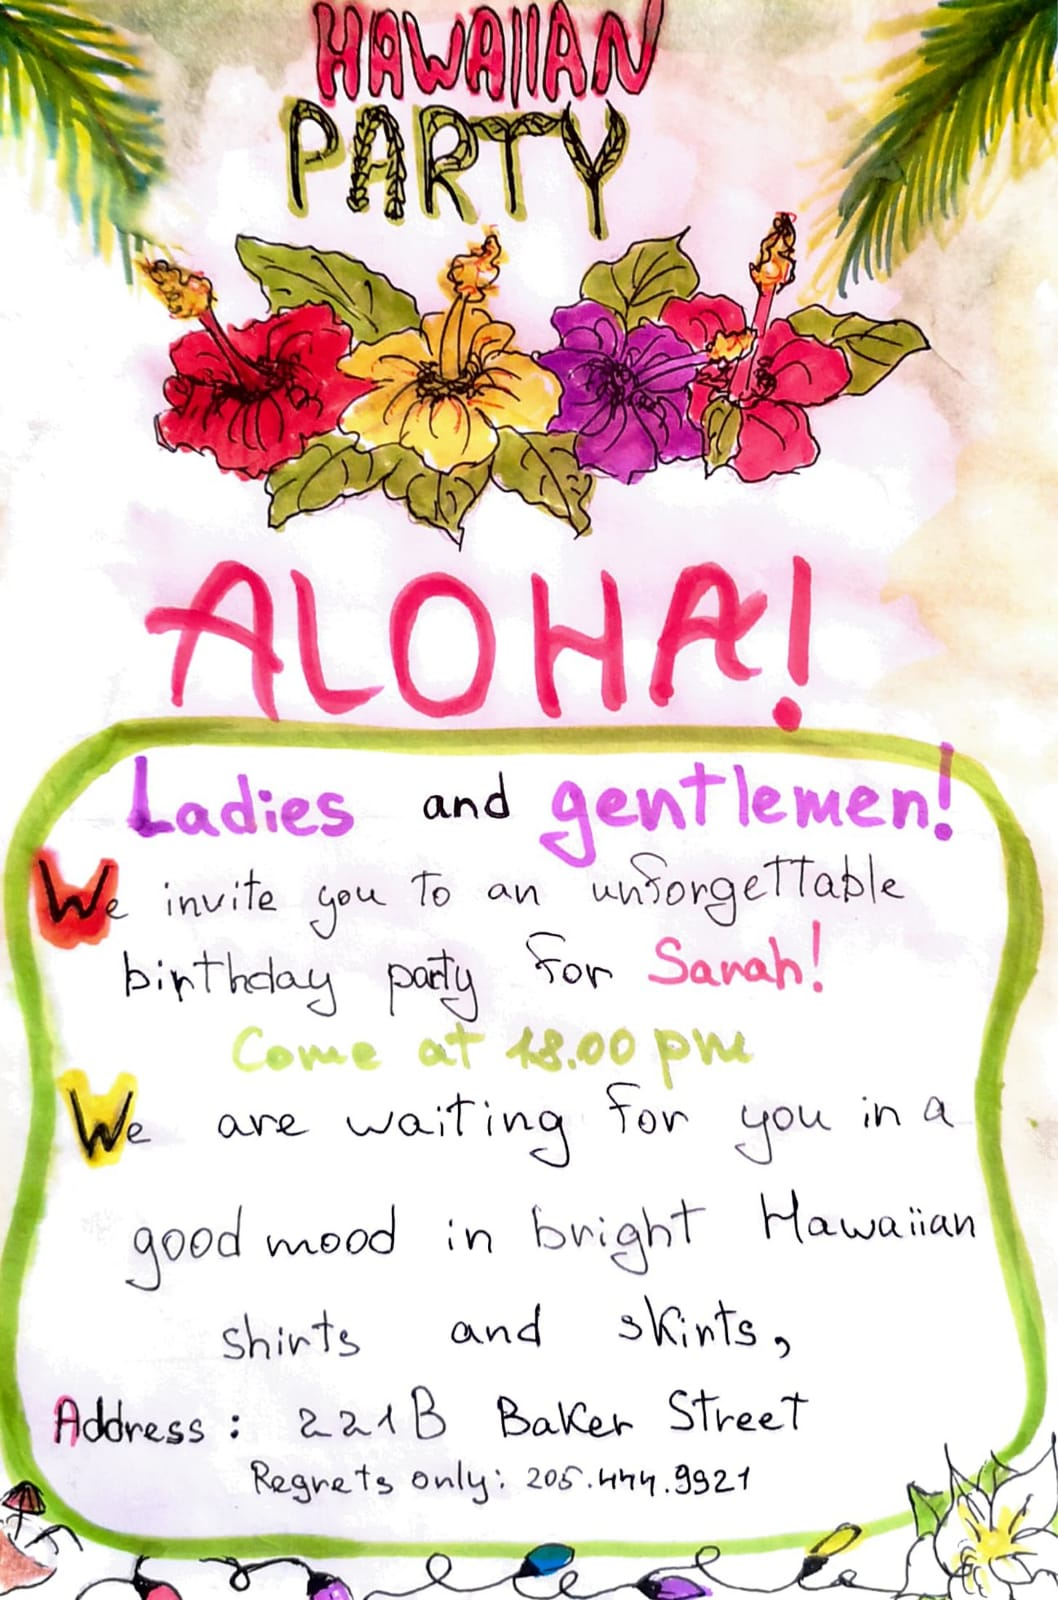 HAWAIIAN
PARTY
ALOHA!
Ladies and gentlemen!
We invite you to an unforgettable
birthday party for Sarah!
Come at 18.00 pm
We are waiting for you in a
good mood in bright Hawaiian
shirts and skirts,
Address: 221B Baker Street
Regrets only: 205.444.9921